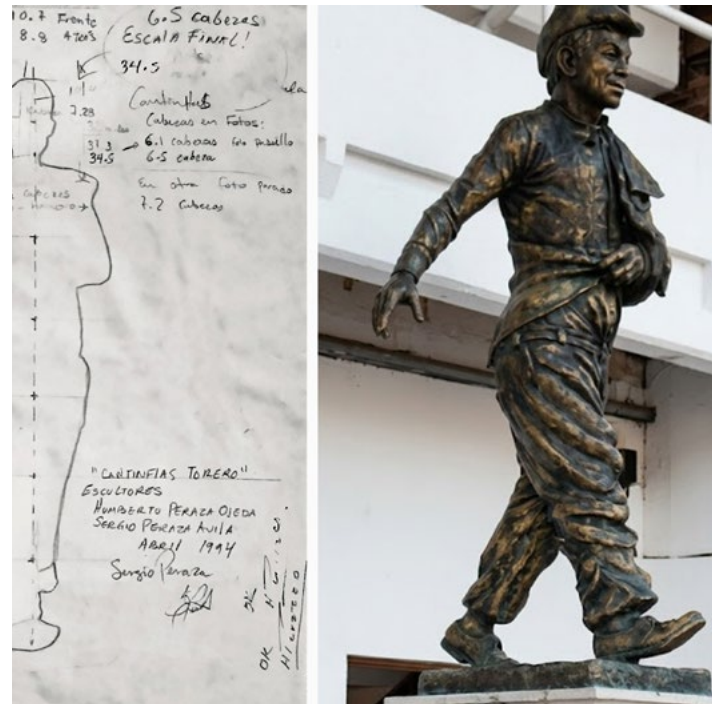 10.7 Frente
8.8 Atras
6.5 cabezas
ESCALA FINAL!
34.5
Cantinflas
7.28
Cabezas en Fotos:
31.3 → 6.1 cabezas foto pasillo
34.5 6.5 cabeza
En otra foto parado
7.2 cabezas
"CANTINFLAS TORERO"
ESCULTORES
HUMBERTO PERAZA OJEDA
SERGIO PERAZA AVILA
ABRIL 1994
Sergio Peraza
OK